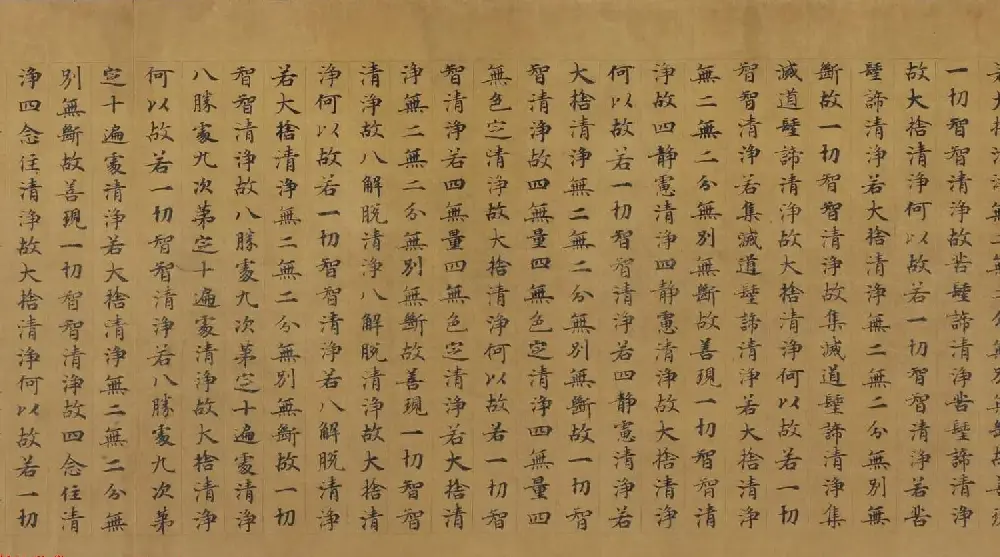 一切智智清淨故苦聖諦清淨苦聖諦清淨
故大捨清淨何以故若一切智智清淨若苦
聖諦清淨若大捨清淨無二無二分無別無
斷故一切智智清淨故集滅道聖諦清淨集
滅道聖諦清淨故大捨清淨何以故若一切
智智清淨若集滅道聖諦清淨若大捨清淨
無二無二分無別無斷故善現一切智智清
淨故四靜慮清淨四靜慮清淨故大捨清淨
何以故若一切智智清淨若四靜慮清淨若
大捨清淨無二無二分無別無斷故一切智
智清淨故四無量四無色定清淨四無量四
無色定清淨故大捨清淨何以故若一切智
智清淨若四無量四無色定清淨若大捨清
淨無二無二分無別無斷故善現一切智智
清淨故八解脫清淨八解脫清淨故大捨清
淨何以故若一切智智清淨若八解脫清淨
若大捨清淨無二無二分無別無斷故一切
智智清淨故八勝處九次第定十遍處清淨
八勝處九次第定十遍處清淨故大捨清淨
何以故若一切智智清淨若八勝處九次第
定十遍處清淨若大捨清淨無二無二分無
別無斷故善現一切智智清淨故四念住清
淨四念住清淨故大捨清淨何以故若一切